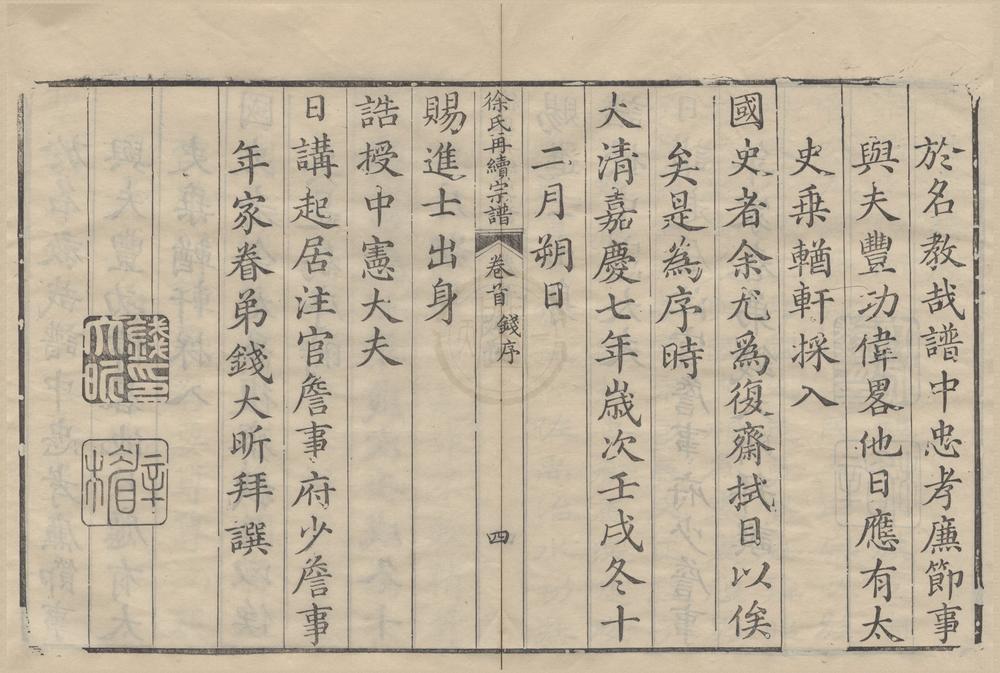 於名教哉譜中忠孝廉節事
與夫豐功偉畧他日應有太
史乗輶軒採入
國史者余尤爲復齋拭目以俟
矣是為序時
大清嘉慶七年嵗次壬戌冬十
二月朔日
徐氏再續宗譜 卷首 錢序 四
賜進士出身
誥授中憲大夫
日講起居注官詹事府少詹事
年家眷弟錢大昕拜譔
錢印大昕
辛楣